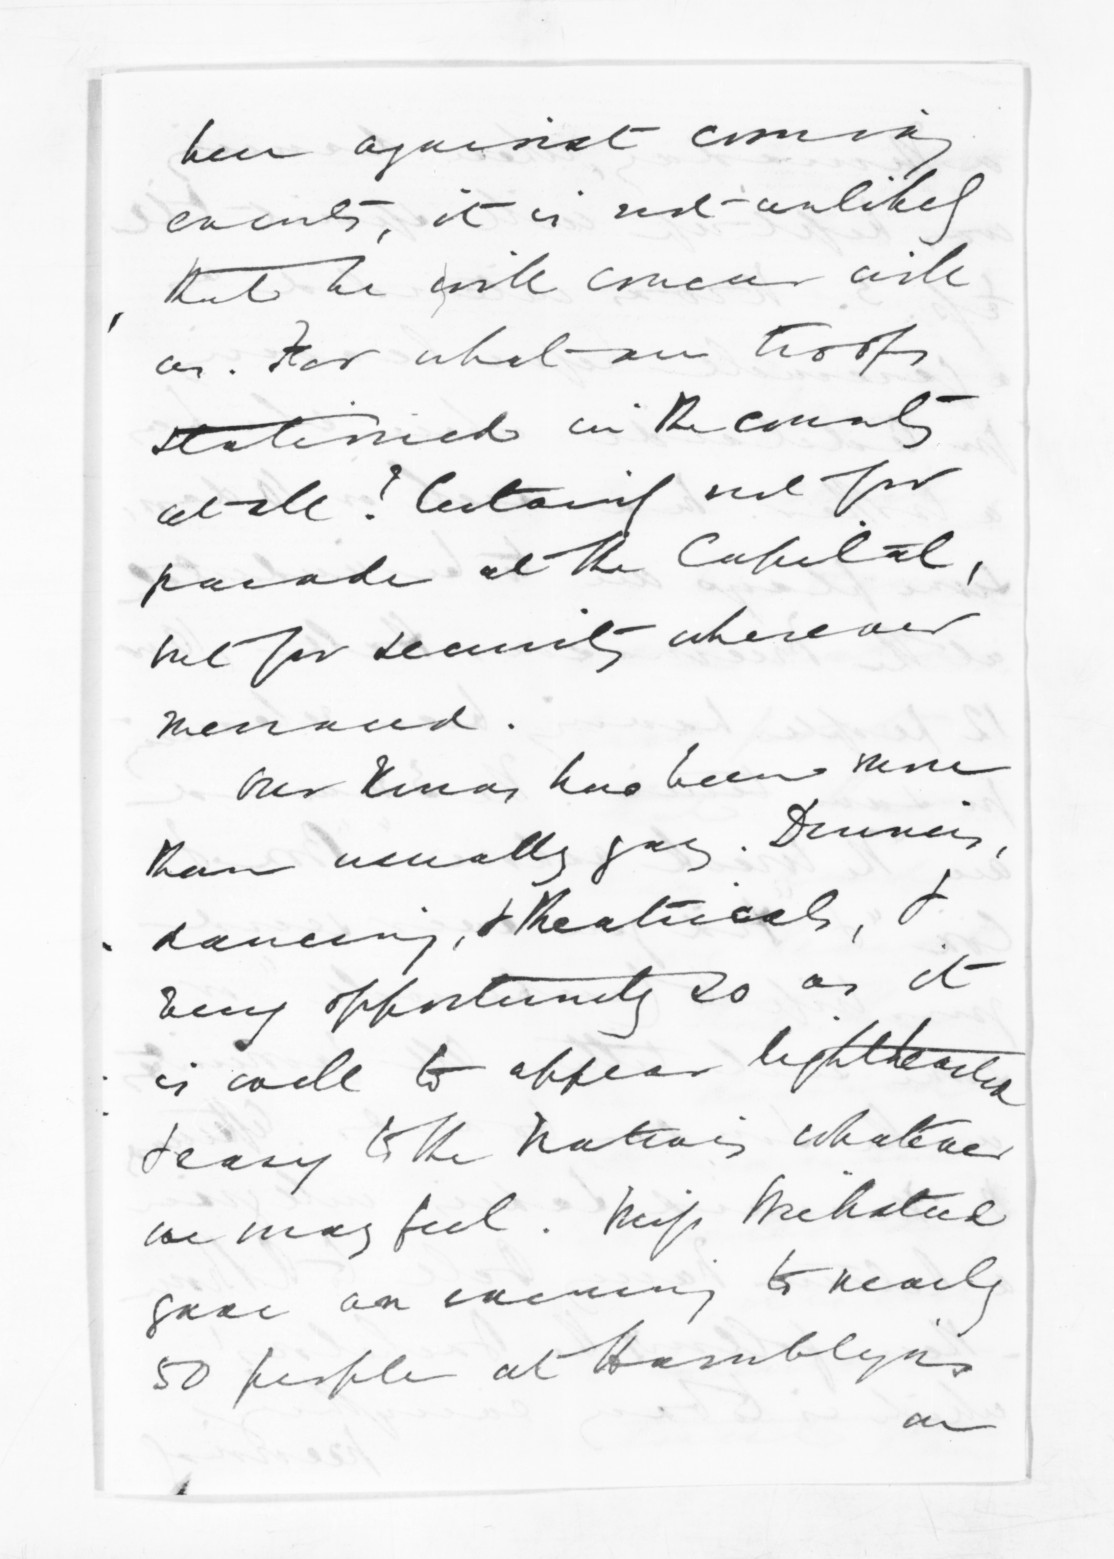 been against coming
events, it is not unlikely
that he will concur with
us. For what are troops
stationed in the country
at all? Certainly not for
parade at the Capital,
but for security wherever
menaced.
Our Xmas has been more
than usually gay. Dinners,
dancing, & theatricals, &
every opportunity so as it
is well to appear lighthearted
& easy to the Natives whatever
we may feel. Miss
gave an evening to nearly
50 people at Hamblyn's
on